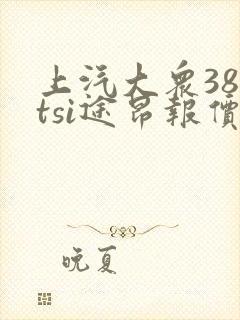 上汽大衆38
tsi途昂報價
晚夏